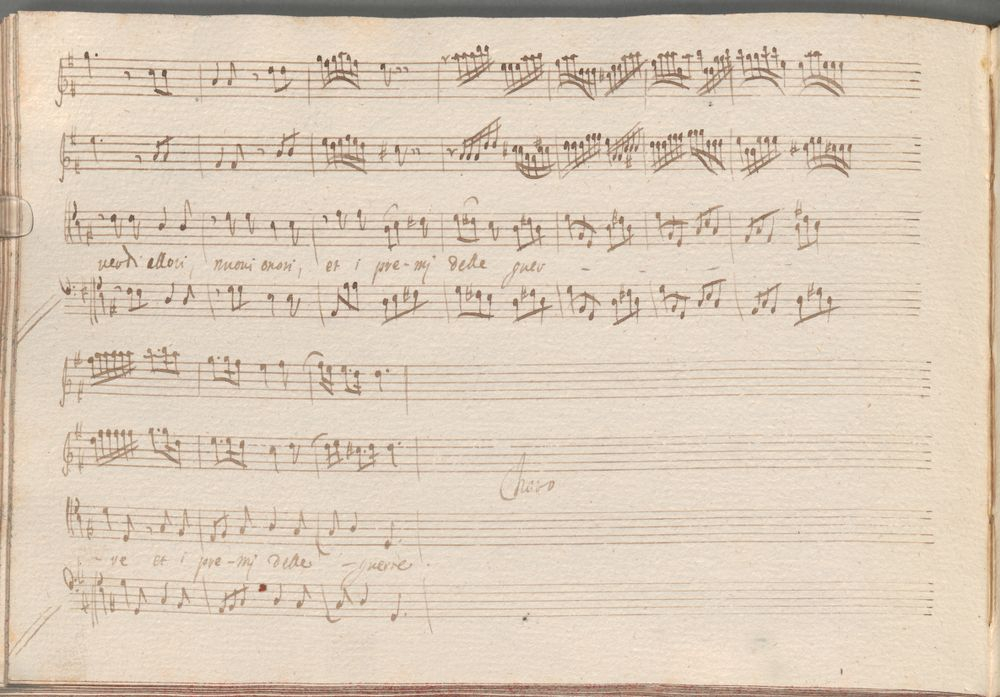 verdi allori, nuoui onori, et i pre-mj delle guer - - - - -
Choro
- re et i pre-mj delle - guerre